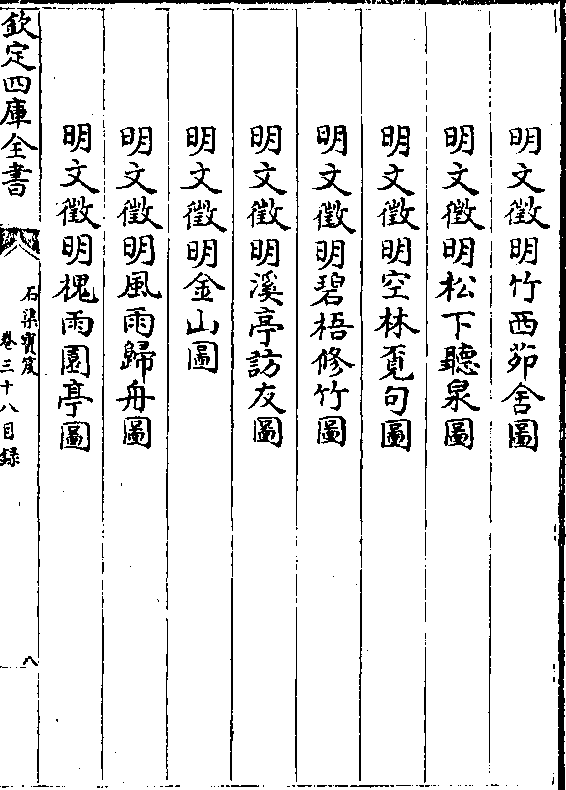 明文徵明竹西茆舍圖
明文徵明松下聽泉圖
明文徵明空林覓句圖
明文徵明碧梧修竹圖
明文徵明溪亭訪友圖
明文徵明金山圖
明文徵明風雨歸舟圖
明文徵明槐雨園亭圖
欽定四庫全書
石渠寶笈
卷三十八目録
八